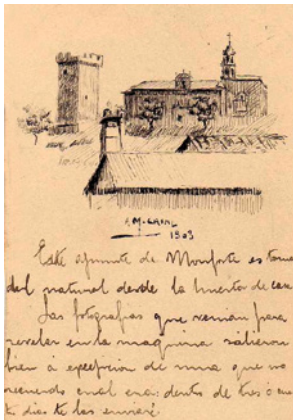 A. M. CASAL
1903
Este apunte de Monforte es toma
del natural desde la huerta de casa
Las fotografias que venían para
revelar en la maquina salieron
bien á excepcion de una que no
recuerdo cual era: dentro de tres ó cua
te dias te las enviaré